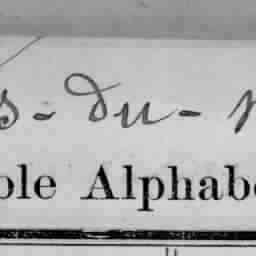 s-du-
ole Alphabe